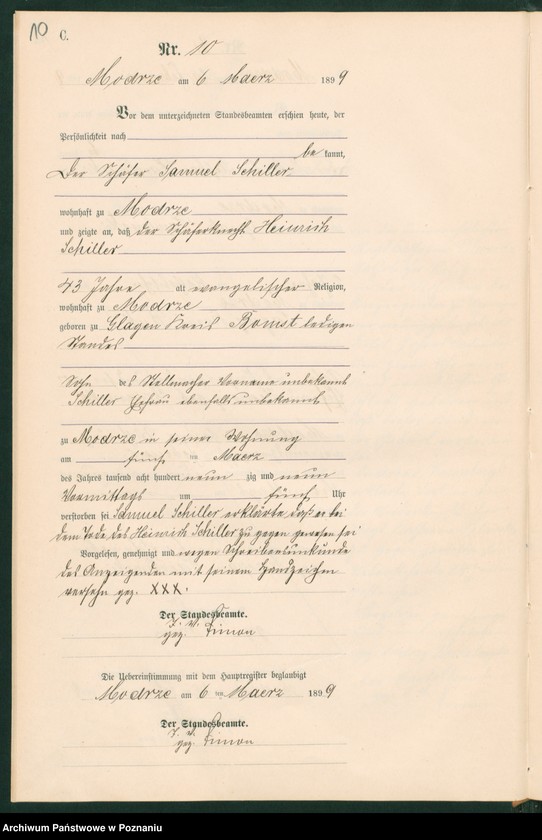 10
C.
Nr. 10
Modrze am 6 Maerz 1899
Vor dem unterzeichneten Standesbeamten erschien heute, der
Persönlichkeit nach
be kannt,
Der Schäfer Samuel Schiller
wohnhaft zu Modrze
und zeigte an, daß der Schäferknecht Heinrich
Schiller
43 Jahre alt evangelischer Religion,
wohnhaft zu Modrze
geboren zu Glagen Kreis Bomst ledigen
Standes
Sohn des Stellmacher Vorname unbekannt
Schiller Ehefrau ebenfalls unbekannt
zu Modrze in seiner Wohnung
am fünf ten Maerz
des Jahres tausend acht hundert neun zig und neun
Vormittags um fünf Uhr
verstorben sei Samuel Schiller erklärte daß er bei
dem Tode des Heinrich Schiller zu gegen gewesen sei
Vorgelesen, genehmigt und wegen Schreibensunkunde
des Anzeigenden mit seinem Handzeichen
versehn gez. XXX.
Der Standesbeamte.
J. V.
gez. Simon
Die Uebereinstimmung mit dem Hauptregister beglaubigt
Modrze am 6 ten Maerz 1899
Der Standesbeamte.
J. V.
gez. Simon
Archiwum Państwowe w Poznaniu